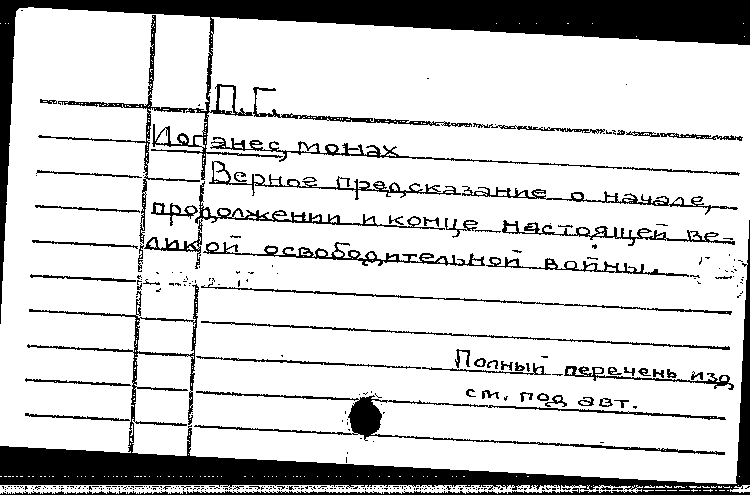 П.Г.
Иоганес, монах
Верное предсказание о начале,
продолжении и конце настоящей ве-
ликой освободительной войны.
Полный перечень изд.
см. под авт.